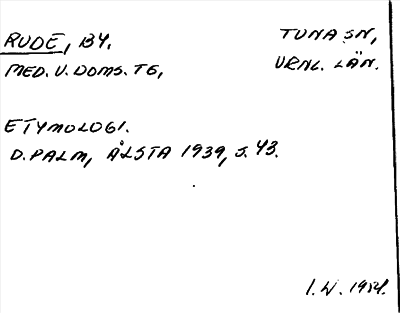 RUDE, BY. TUNA SN,
MED. V. DOMS. TG, VRML. LÄN.
ETYMOLOGI.
D. PALM, ÅLSTA 1939, S. 43.
I. W. 1984.